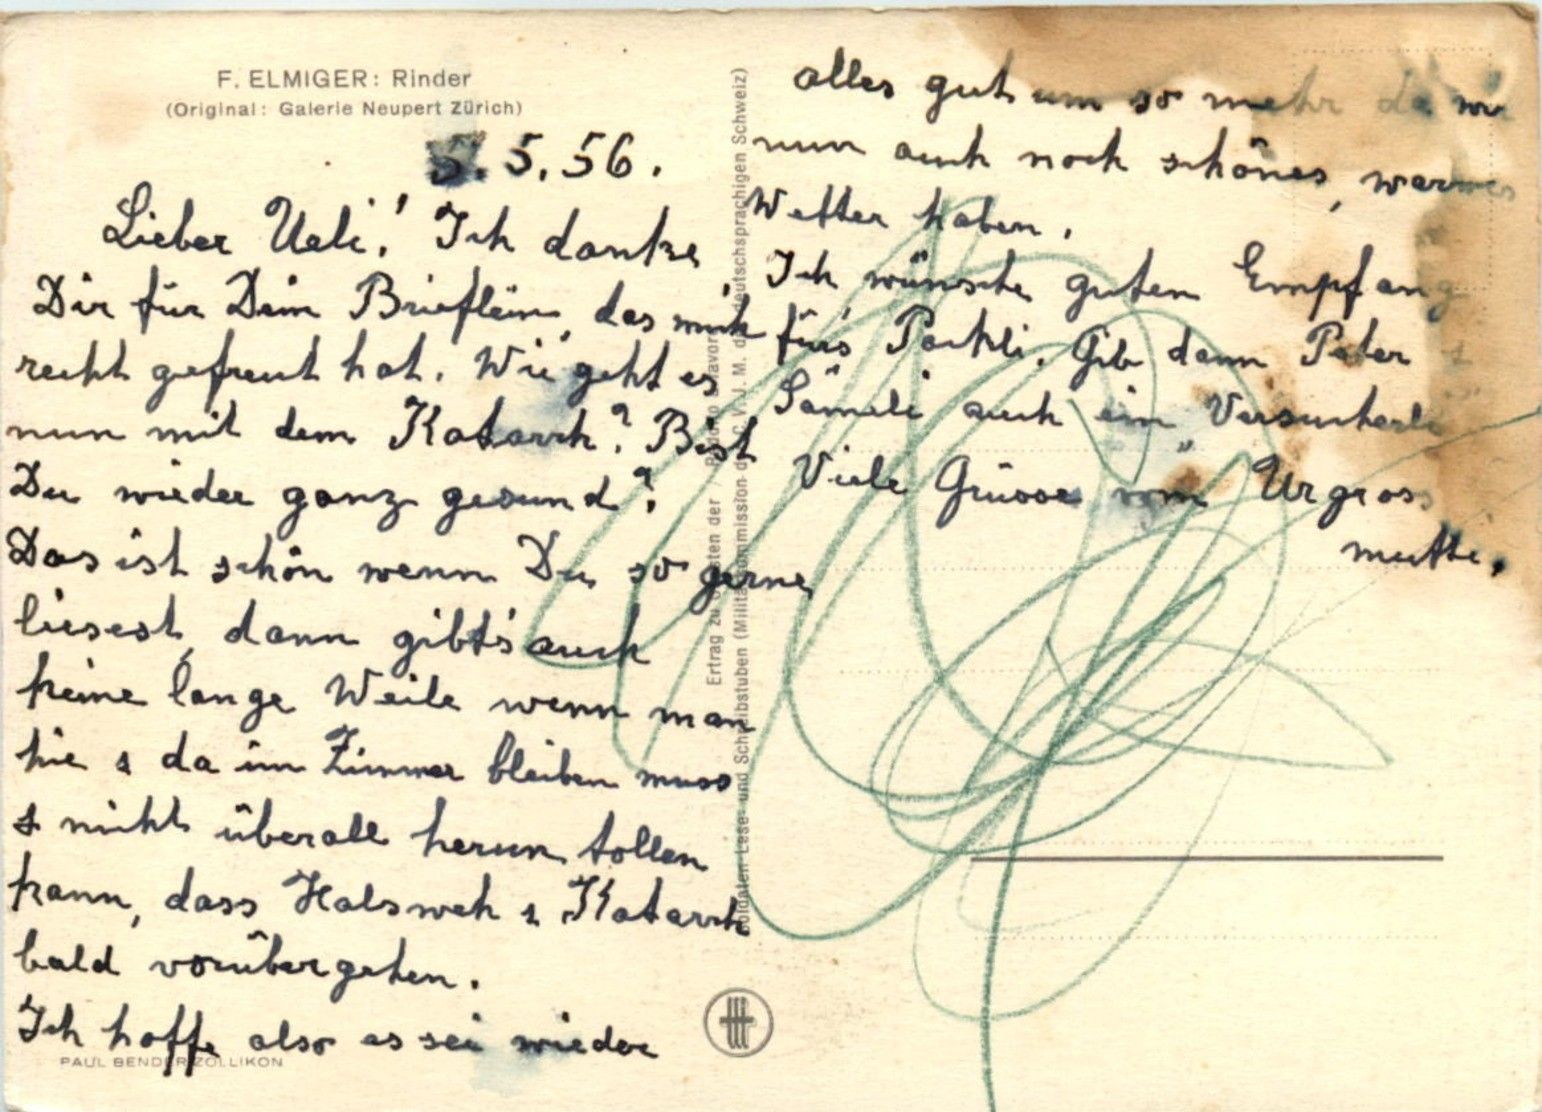 F. ELMIGER: Rinder
(Original: Galerie Neupert Zürich)
5. 5. 56.
Lieber Ueli! Ich danke
Dir für Dein Brieflein, das mich
recht gefreut hat. Wie geht es
nun mit dem Katarrh? Bist
Du wieder ganz gesund?
Das ist schön wenn Du so gerne
liesest, dann gibt's auch
keine lange Weile wenn man
hie & da im Zimmer bleiben muss
& nicht überall herum tollen
kann, dass Halsweh & Katarrh
bald vorübergehen.
Ich hoffe also es sei wieder
PAUL BENDER ZOLLIKON
Ertrag zu Gunsten der
Soldaten-Lese- und Schreibstuben (Militärkommission der C.V.J.M. der deutschsprachigen Schweiz)
alles gut um so mehr da wir
nun auch noch schönes, warmes
Wetter haben.
Ich wünsche guten Empfang
fürs Päckli. Gib dann Peter &
Sämeli auch ein Versucherli
Viele Grüsse vom Urgross
mutti.